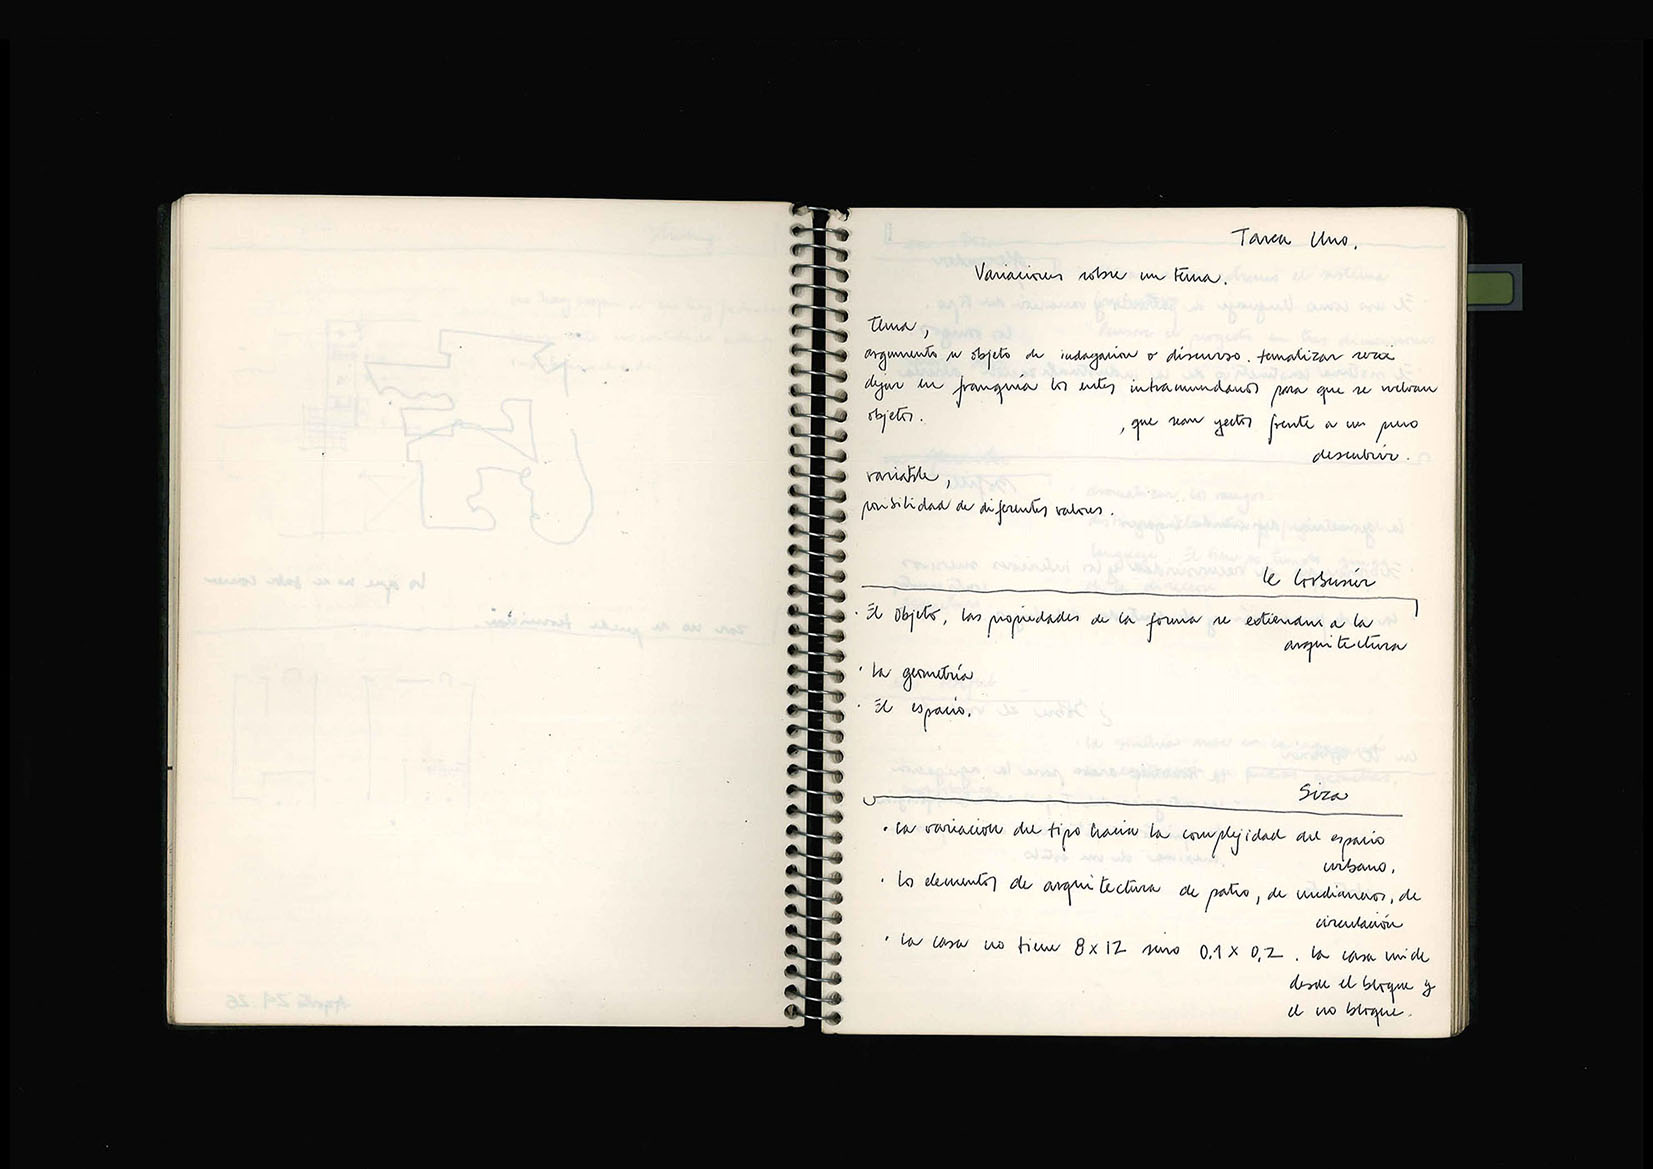 Tarea Uno.
Variaciones sobre un tema.
tema,
argumento u objeto de indagación o discurso. tematizar sería
dejar en franquía los entes intramundanos para que se vuelvan
objetos. , que sean yectos frente a un puro
descubrir.
variable,
posibilidad de diferentes valores.
le Corbusier
· El Objeto, las propiedades de la forma se extienden a la
arquitectura
· La geometría
· El espacio.
Siza
· La variación del tipo hacia la complejidad del espacio
urbano.
· Los elementos de arquitectura de patio, de medianeros, de
circulación
· La casa no tiene 8x12 sino 0.1 x 0,2 . La casa mide
desde el bloque y
el no bloque.